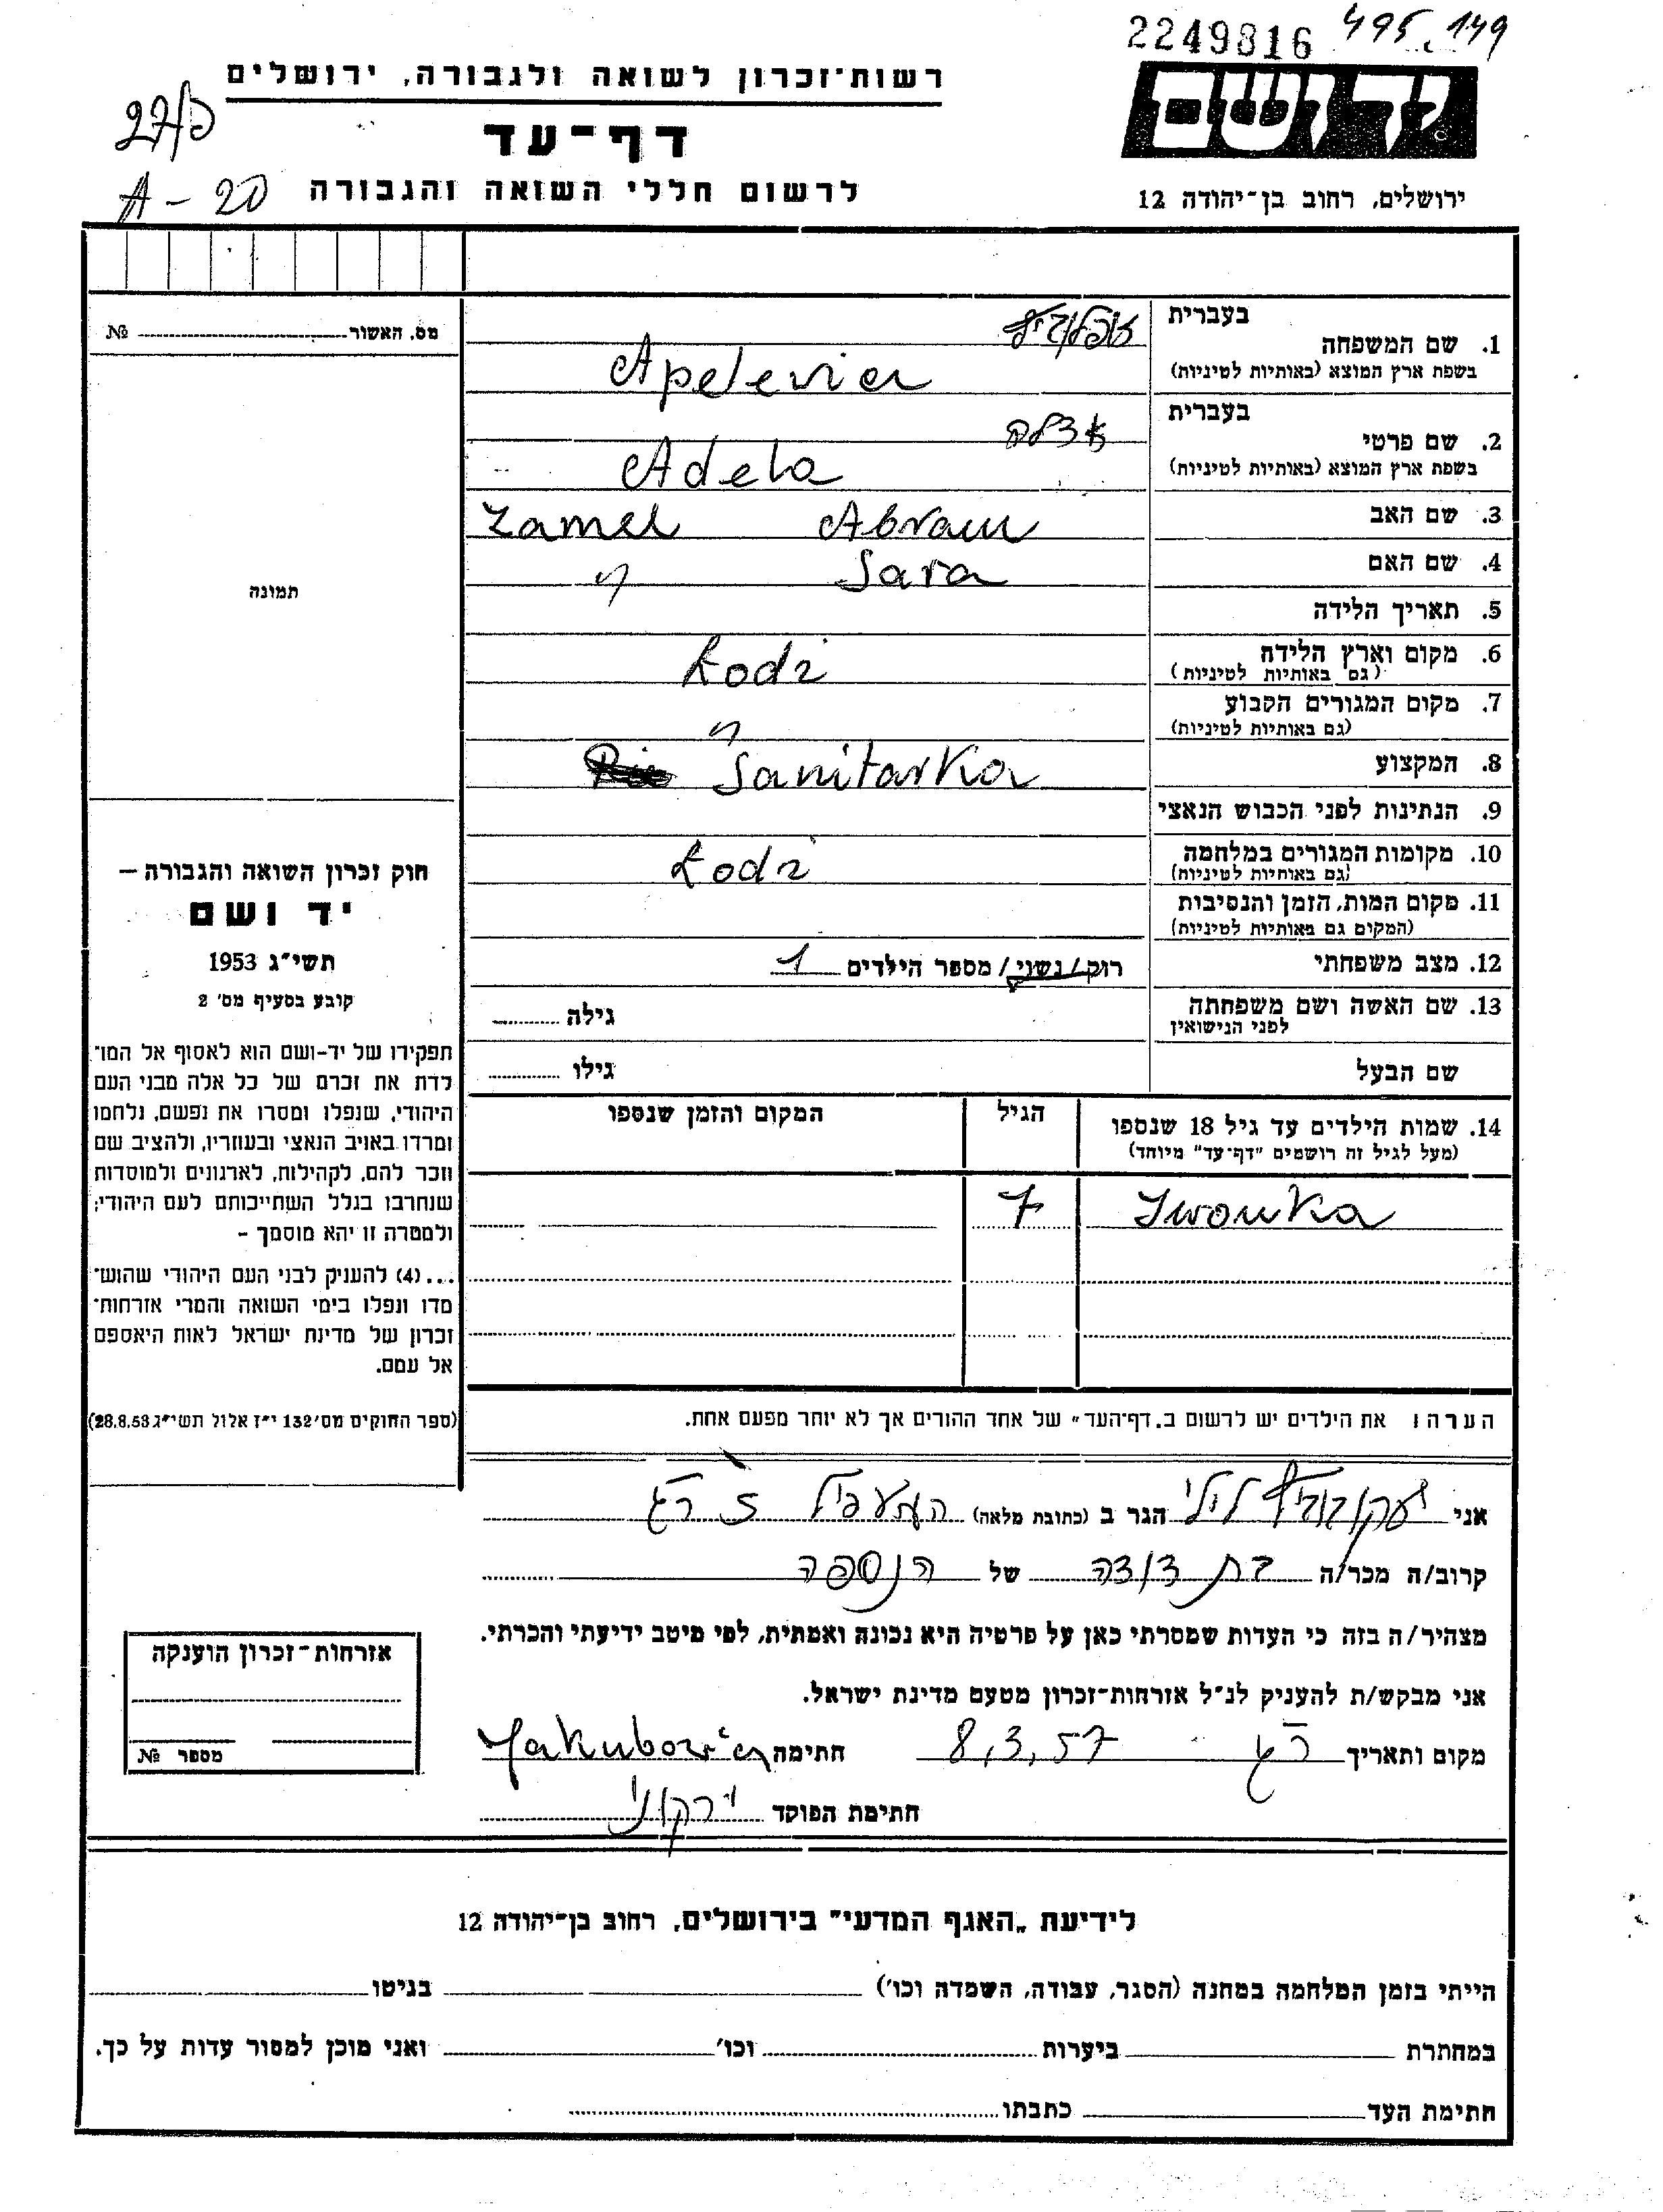 2249816 495.149
רשות־זכרון לשואה ולגבורה, ירושלים
ידושם
דף־עד
A - 20
לרשום חללי השואה והגבורה
ירושלים, רחוב בן־יהודה 12
מס. האשור № 
בעברית
1. שם המשפחה
בשפת ארץ המוצא (באותיות לטיניות)
Apelevicz
בעברית
2. שם פרטי אדלה
בשפת ארץ המוצא (באותיות לטיניות)
Adela
3. שם האב Abram Zamel
4. שם האם Sara "
תמונה
5. תאריך הלידה
6. מקום וארץ הלידה
(גם באותיות לטיניות)
Łodz
7. מקום המגורים הקבוע
(גם באותיות לטיניות)
"
8. המקצוע Sanitarka
9. הנתינות לפני הכבוש הנאצי
10. מקומות המגורים במלחמה
(גם באותיות לטיניות)
Łodz
11. מקום המות, הזמן והנסיבות
(המקום גם באותיות לטיניות)
12. מצב משפחתי רוק/נשוי/מספר הילדים 1
13. שם האשה ושם משפחתה
לפני הנישואין
גילה
שם הבעל גילו
14. שמות הילדים עד גיל 18 שנספו
(מעל לגיל זה רושמים "דף־עד" מיוחד)
הגיל
המקום והזמן שנספו
Iwonka 7
חוק זכרון השואה והגבורה –
יד ושם
תשי"ג 1953
קובע בסעיף מס' 2
תפקידו של יד-ושם הוא לאסוף אל המו־
לדת את זכרם של כל אלה מבני העם
היהודי, שנפלו ומסרו את נפשם, נלחמו
ומרדו באויב הנאצי ובעוזריו, ולהציב שם
וזכר להם, לקהילות, לארגונים ולמוסדות
שנחרבו בגלל השתייכותם לעם היהודי;
ולמטרה זו יהא מוסמך –
...(4) להעניק לבני העם היהודי שהוש־
מדו ונפלו בימי השואה והמרי אזרחות־
זכרון של מדינת ישראל לאות היאספם
אל עמם.
(ספר החוקים מס' 132 י"ז אלול תשי"ג 28.8.53)
הערה: את הילדים יש לרשום ב„דף־העד" של אחד ההורים אך לא יותר מפעם אחת.
אני יעקובוביץ לילי הגר ב (כתובת מלאה) ר"ג
קרוב/ה מכר/ה בת דודה של הנספה
מצהיר/ה בזה כי העדות שמסרתי כאן על פרטיה היא נכונה ואמתית, לפי מיטב ידיעתי והכרתי.
אני מבקש/ת להעניק לנ"ל אזרחות־זכרון מטעם מדינת ישראל.
מקום ותאריך ר"ג 8,3,57 חתימה Jakubowicz
חתימת הפוקד ירקוני
אזרחות־זכרון הוענקה
מספר №
לידיעת „האגף המדעי" בירושלים, רחוב בן־יהודה 12
הייתי בזמן המלחמה במחנה (הסגר, עבודה, השמדה וכו') בגיטו
במחתרת ביערות וכו' ואני מוכן למסור עדות על כך.
חתימת העד כתבתו